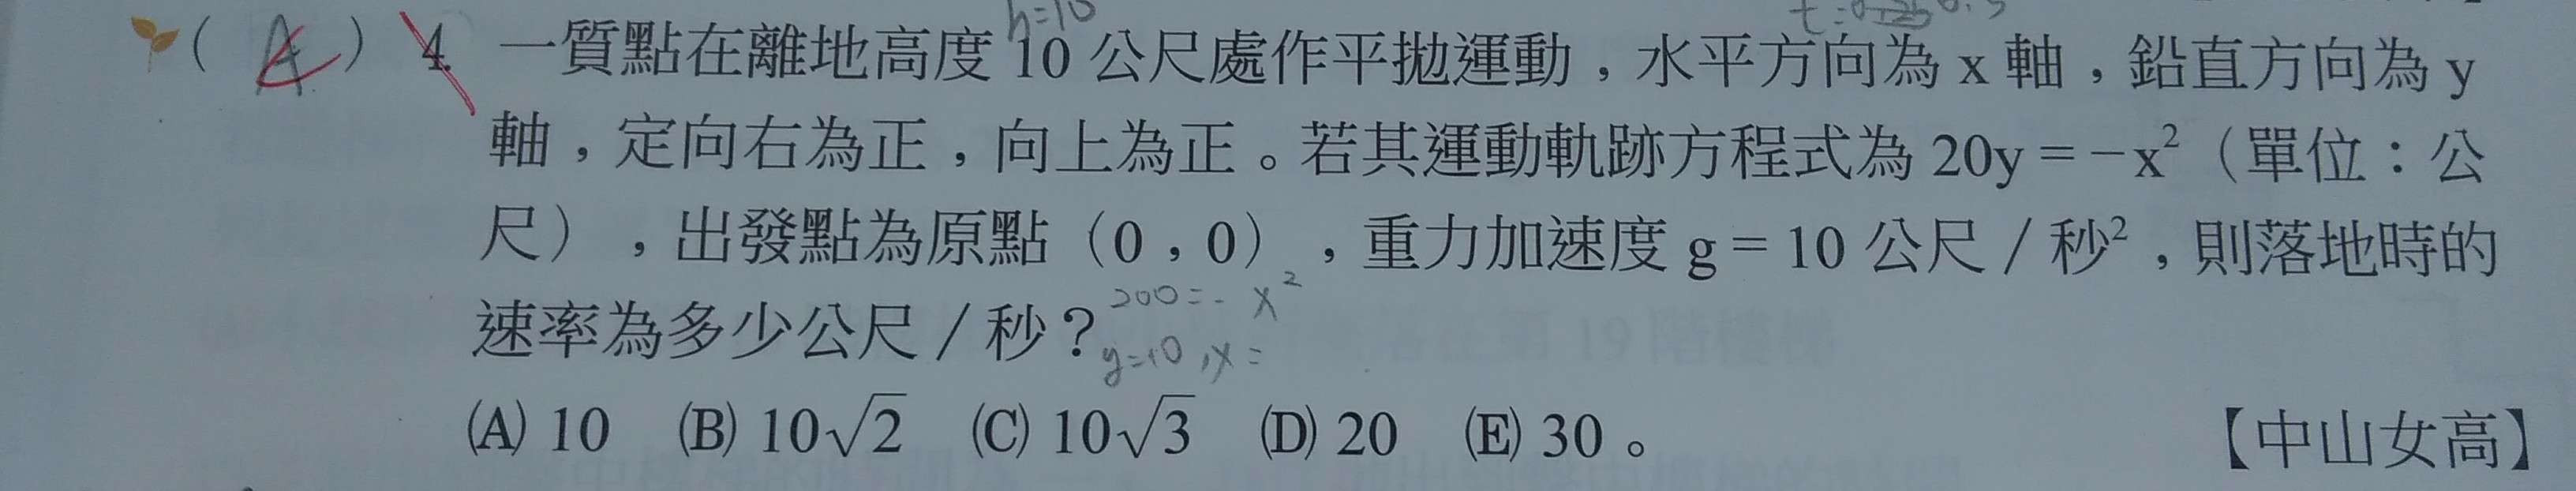 h=10
(A) 4. 一質點在離地高度 10 公尺處作平拋運動，水平方向為 x 軸，鉛直方向為 y
軸，定向右為正，向上為正。若其運動軌跡方程式為 20y = −x²（單位：公
尺），出發點為原點（0，0），重力加速度 g = 10 公尺／秒²，則落地時的
速率為多少公尺／秒？ 200=-x²
y=10,x=
(A) 10 (B) 10√2 (C) 10√3 (D) 20 (E) 30。 【中山女高】